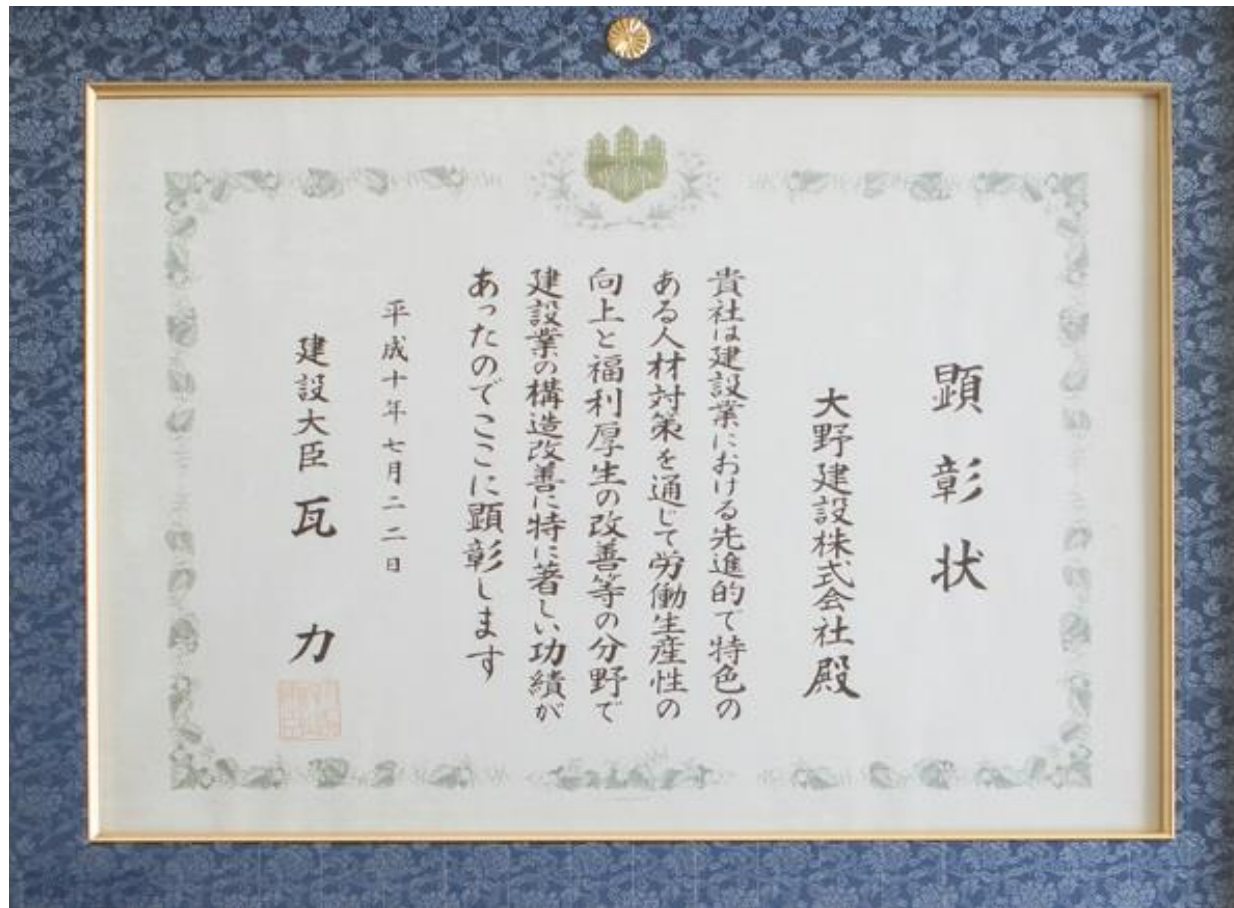 顕彰状
大野建設株式会社殿
貴社は建設業における先進的で特色の
ある人材対策を通じて労働生産性の
向上と福利厚生の改善等の分野で
建設業の構造改善に特に著しい功績が
あったのでここに顕彰します
平成十年七月二二日
建設大臣 瓦 力